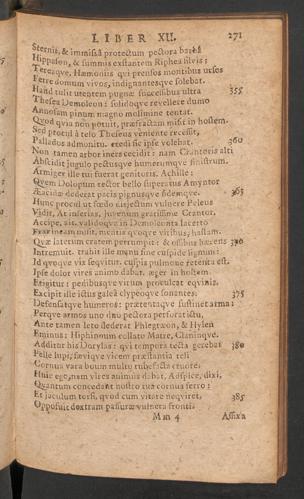 LIBER XII. 271
Sternit, & immissâ protectum pectora barbâ
Hippason, & summis exstantem Riphea silvis;
Tereaque, Hæmoniis qui prensos montibus ursos
Ferre domum vivos, indignantesque solebat.
Haud tulit utentem pugnæ successibus ultra 355
Thesea Demoleon: solidoque revellere dumo
Annosam pinum magno molimine tentat.
Quod quia non potuit, præfractam misit in hostem.
Sed procul à telo Theseus veniente recessit,
Pallados admonitu. credi sic ipse volebat. 360
Non tamen arbor iners cecidit: nam Crantoris alti
Abscidit jugulo pectusque humerumque sinistrum.
Armiger ille tui fuerat genitoris, Achille:
Quem Dolopum rector bello superatus Amyntor
Æacidæ dederat pacis pignusque fidemque. 365
Hunc procul ut fœdo disjectum vulnere Peleus
Vidit, At inferias, juvenum gratissime Crantor,
Accipe, ait. validoque in Demoleonta lacerto
Fraxineam misit, mentis quoque viribus, hastam.
Quæ laterum cratem perrumpit: & ossibus hærens 370
Intremuit. trahit ille manu sine cuspide lignum:
Id quoque vix sequitur. cuspis pulmone retenta est.
Ipse dolor vires animo dabat. æger in hostem
Erigitur: pedibusque virum proculcat equinis.
Excipit ille ictus galeâ clypeoque sonantes; 375
Defensatque humeros: prætentaque sustinet arma:
Perque armos uno duo pectora perforat ictu.
Ante tamen leto dederat Phlegræon, & Hylen
Eminus: Hiphinoum collato Marte, Claninque.
Additur his Dorylas: qui tempora tecta gerebat 380
Pelle lupi, sævique vicem præstantia teli
Cornua vara boum multo rubefacta cruore.
Huic ego, nam vires animus dabat, Adspice, dixi,
Quantum concedant nostro tua cornua ferro:
Et jaculum torsi. quod cum vitare nequiret, 385
Opposuit dextram passuræ vulnera fronti.
Mm 4 Affixa